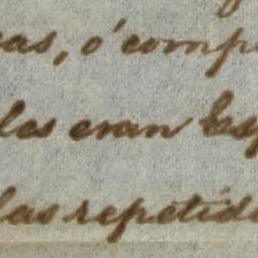 cas, ó comp
les eran Esp
las repetid